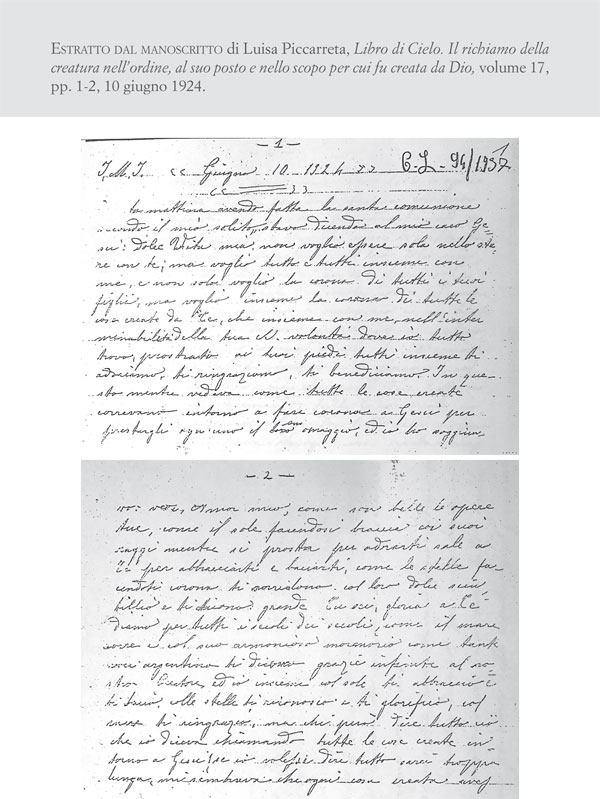 ESTRATTO DAL MANOSCRITTO di Luisa Piccarreta, Libro di Cielo. Il richiamo della
creatura nell'ordine, al suo posto e nello scopo per cui fu creata da Dio, volume 17,
pp. 1-2, 10 giugno 1924.
– 1 –
J.M.J. << Giugno 10 1924 >> C.L. - 94/1937
la mattina avendo fatta la santa comunione
secondo il mio solito, stavo dicendo al mio caro Ge-
sù: Dolce Vita mia, non voglio essere sola nello sta-
re con te; ma voglio tutto e tutti insieme con
me, e non solo voglio la corona di tutti i tuoi
figli, ma voglio insieme la corona di tutte le
cose create da Te, che insieme con me, nell'inter
minabilità della tua S. volontà dove io tutto
trovo, prostrato ai tuoi piedi tutti insieme ti
adoriamo, ti ringraziamo, ti benediciamo. In que-
sto mentre vedevo come tutte le cose create
correvano intorno a fare corona a Gesù per
prestargli ognuno il omaggio, ed io ho soggiun-
– 2 –
to: vedi, Amor mio, come son belle le opere
tue, come il sole facendosi braccia coi suoi
raggi mentre si prostra per adorarti sale a
Te per abbracciarti e baciarti, come le stelle fa
cendoti corona ti sorridono col loro dolce scin
tillio e ti dicono: grande Tu sei, gloria a Te
diamo per tutti i secoli dei secoli, come il mare
corre e col suo armonioso mormorio come tante
voci argentine ti dicono grazie infinite al no-
stro Creatore, ed io insieme col sole ti abbraccio e
ti bacio, colle stelle ti riconosco e ti glorifico, col
mare ti ringrazio, ma chi può dire tutto ciò
che io dicevo chiamando tutte le cose create in-
torno a Gesù! se io volessi dire tutto sarei troppo
lunga, mi sembrava che ogni cosa creata aves-